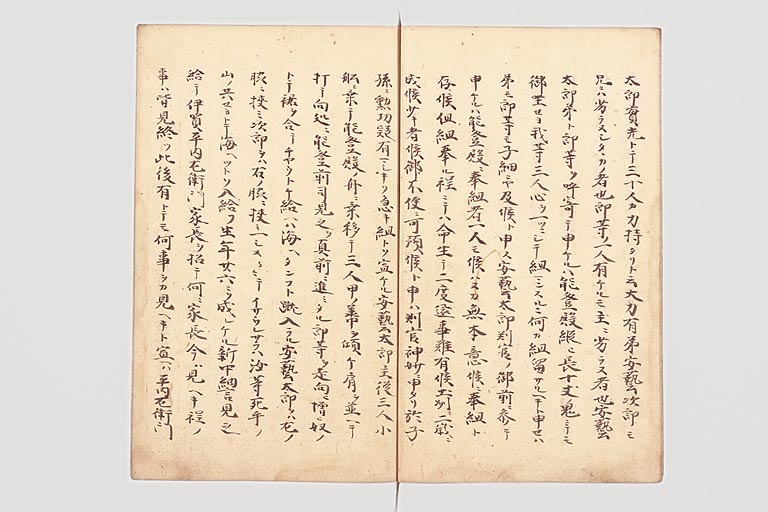 太郎實光トテ三十人カ力持タリト云大力有弟安藝次郎モ
兄ニ劣ラスシタヽカ者也郎等ノ一人有ケルモ主ニ劣ラヌ者也安藝
太郎弟ト郎等ヲ呼寄テ申ケルハ能登殿縦ヒ長十丈ノ鬼ニテモ
御坐セヨ我等三人心ヲ一ツニシテ組ンスルニ何カ組留サルヘキト申セハ
弟モ郎等モ子細ニヤ及候ト申ス安藝太郎判官ノ御前ニ参テ
申ケルハ能登殿ニ奉組者一人モ候ハヌカ無本意候ニ奉組ト
存候但組奉ル程ニテハ命生テ二度返事難有候土州ニ二歳ニ
成候少キ者候御不便ニ可預候ト申ハ判官神妙ニ申タリ於子
孫ニ勲功疑有ヘシ トク急キ組トソ宣ケル安藝太郎主後三人小
舩ニ乗テ能登殿ノ舟ニ乗移テ三人甲ノ錣ヲ傾ケ肩ヲ並ヘテ
打テ向処ニ能登前司見之ヲ真前ニ進ミタル郎等ヲ走向テ憎ヒ奴ノ
トテ裾ヲ合テチヤウト蹴給ヘハ海ヘタンフト蹴入ラル安藝太郎ヲハ左ノ
脇ニ挟ミ次郎ヲハ右ノ脇ニ挟ミ一シメシメテイサウレサラハ汝等死手ノ
山ノ共セヨトテ海ヘツトソ入給フ生年廿六ニソ成レケル新中納言見之
給テ伊賀平内左衛門家長ヲ招テ何ニ家長今ハ見ヘキ程ノ
事ハ皆見終ツ此後有トテモ何事ヲカ見ヘキト宣ヘハ平内左衛門